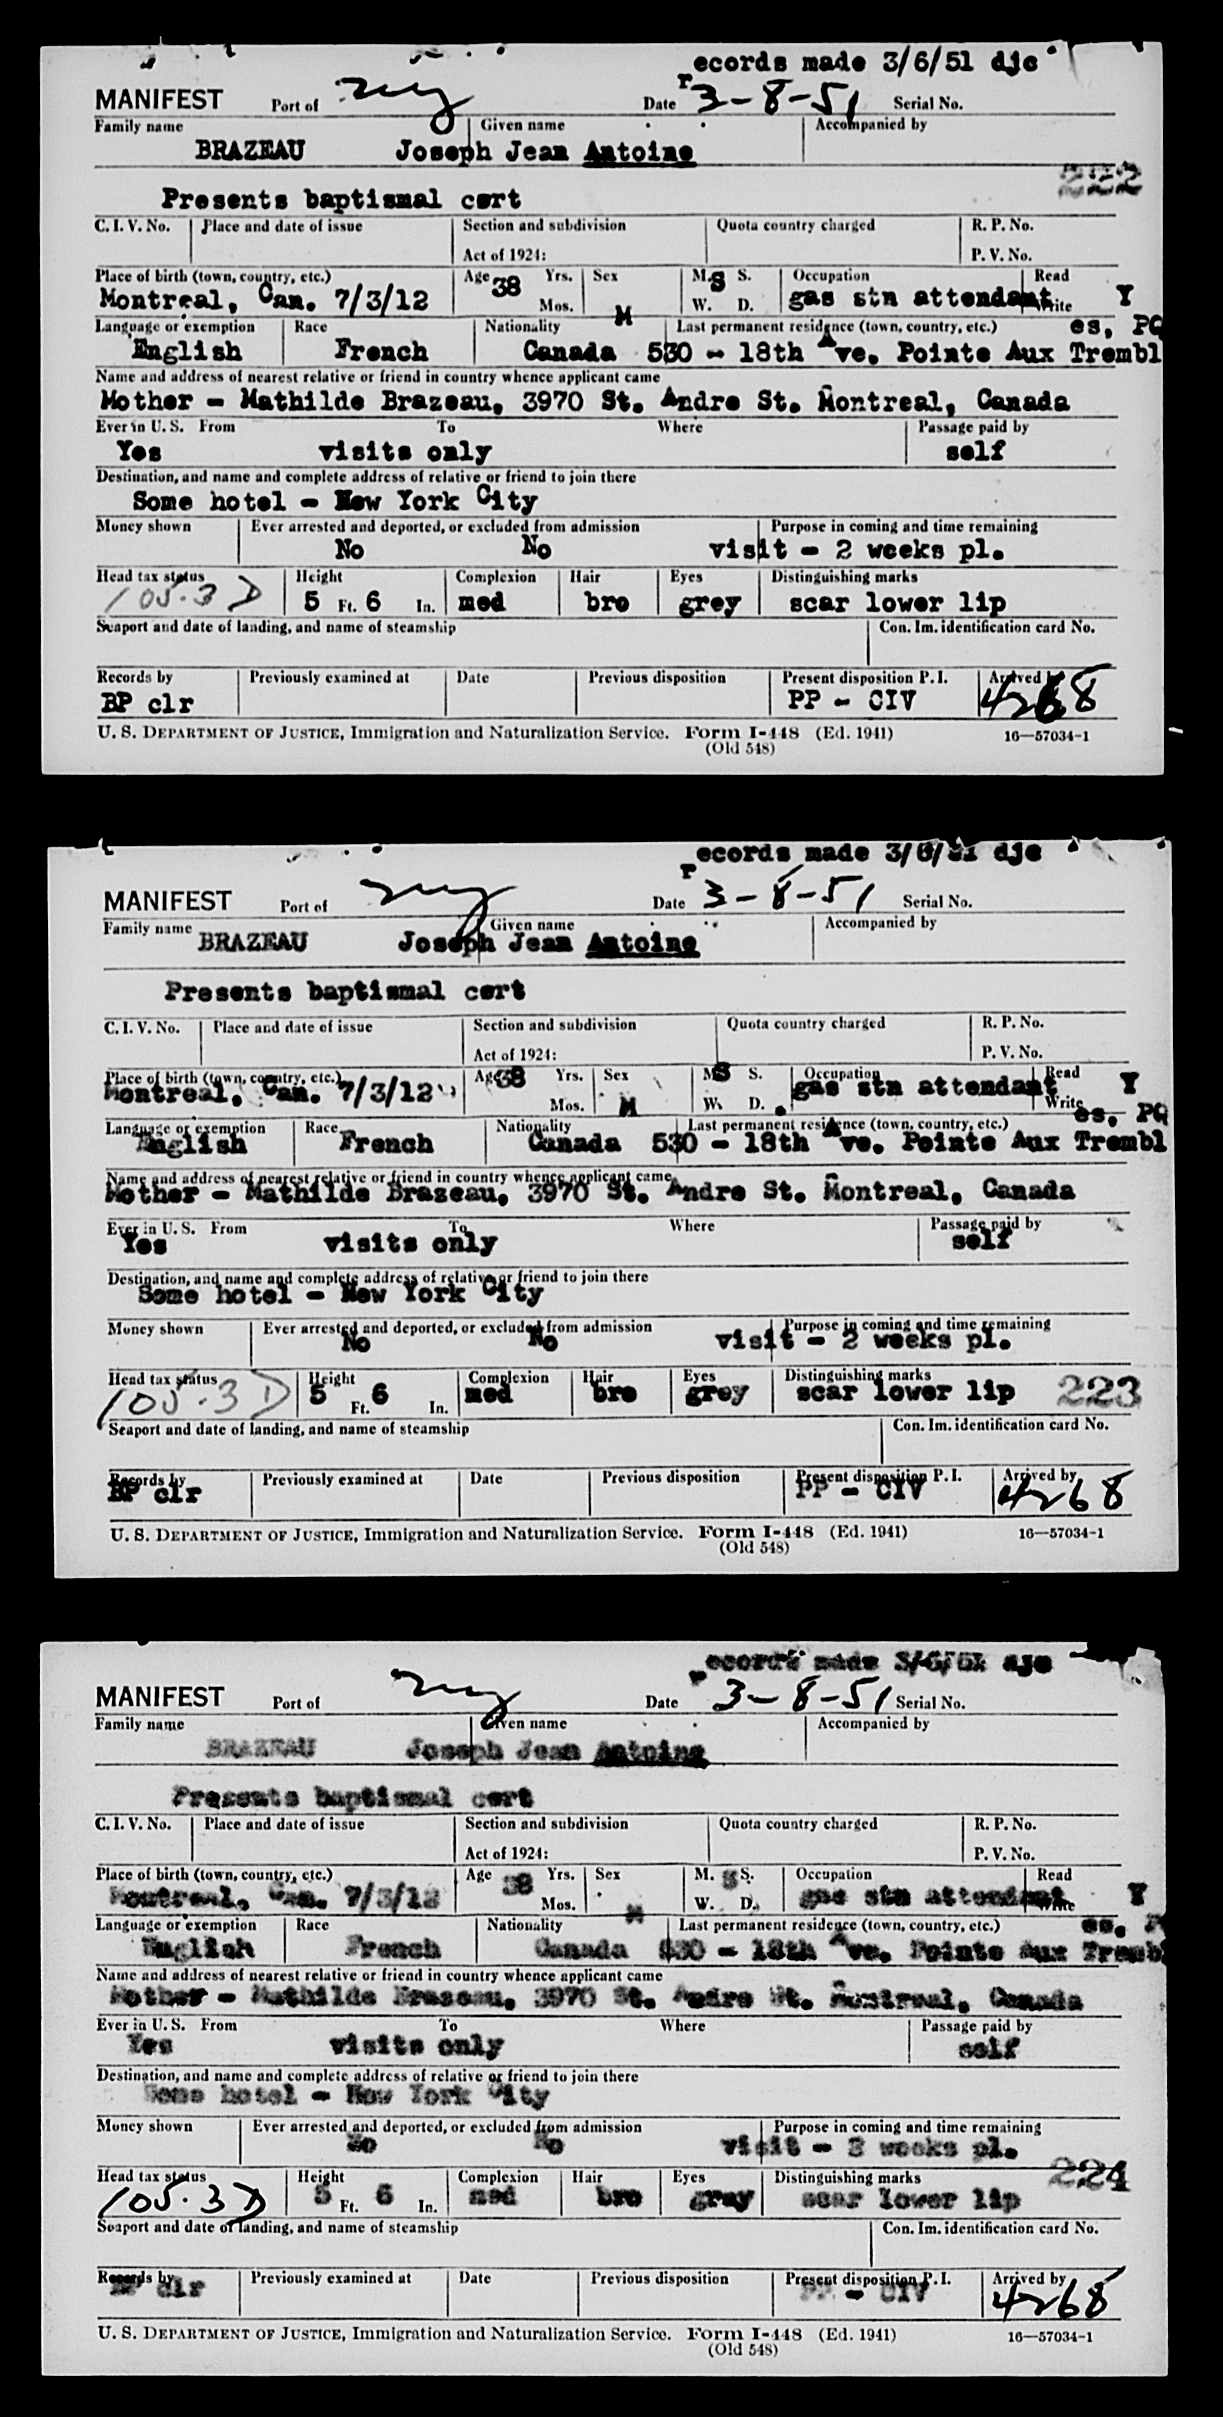 records made 3/6/51 djc
MANIFEST Port of Date 3-8-51 Serial No.
Family name Given name Accompanied by
BRAZEAU Joseph Jean Antoine
222
Presents baptismal cert
C. I. V. No. Place and date of issue Section and subdivision Quota country charged R. P. No.
Act of 1924: P. V. No.
Place of birth (town, country, etc.) Age 38 Yrs. Sex M. S S. Occupation Read
Montreal, Can. 7/3/12 Mos. M W. D. gas stn attendant Write Y
Language or exemption Race Nationality Last permanent residence (town, country, etc.) es, PQ
English French Canada 530 - 18th Ave. Pointe Aux Trembl
Name and address of nearest relative or friend in country whence applicant came
Mother - Mathilde Brazeau, 3970 St. Andre St. Montreal, Canada
Ever in U. S. From To Where Passage paid by
Yes visits only self
Destination, and name and complete address of relative or friend to join there
Some hotel - New York City
Money shown Ever arrested and deported, or excluded from admission Purpose in coming and time remaining
No No visit - 2 weeks pl.
Head tax status Height Complexion Hair Eyes Distinguishing marks
105.3 D 5 Ft. 6 In. med bro grey scar lower lip
Seaport and date of landing, and name of steamship Con. Im. identification card No.
Records by Previously examined at Date Previous disposition Present disposition P. I. Arrived by
BP clr PP - CIV 4268
U. S. DEPARTMENT OF JUSTICE, Immigration and Naturalization Service. Form I-448 (Ed. 1941) 16—57034-1
(Old 548)
records made 3/6/51 djc
MANIFEST Port of Date 3-8-51 Serial No.
Family name Given name Accompanied by
BRAZEAU Joseph Jean Antoine
Presents baptismal cert
C. I. V. No. Place and date of issue Section and subdivision Quota country charged R. P. No.
Act of 1924: P. V. No.
Place of birth (town, country, etc.) Age 38 Yrs. Sex M. S S. Occupation Read
Montreal, Can. 7/3/12 Mos. M W. D. gas stn attendant Write Y
Language or exemption Race Nationality Last permanent residence (town, country, etc.) es, PQ
English French Canada 530 - 18th Ave. Pointe Aux Trembl
Name and address of nearest relative or friend in country whence applicant came
Mother - Mathilde Brazeau, 3970 St. Andre St. Montreal, Canada
Ever in U. S. From To Where Passage paid by
Yes visits only self
Destination, and name and complete address of relative or friend to join there
Some hotel - New York City
Money shown Ever arrested and deported, or excluded from admission Purpose in coming and time remaining
No No visit - 2 weeks pl.
Head tax status Height Complexion Hair Eyes Distinguishing marks
105.3 D 5 Ft. 6 In. med bro grey scar lower lip 223
Seaport and date of landing, and name of steamship Con. Im. identification card No.
Records by Previously examined at Date Previous disposition Present disposition P. I. Arrived by
BP clr PP - CIV 4268
U. S. DEPARTMENT OF JUSTICE, Immigration and Naturalization Service. Form I-448 (Ed. 1941) 16—57034-1
(Old 548)
records made 3/6/51 djc
MANIFEST Port of Date 3-8-51 Serial No.
Family name Given name Accompanied by
BRAZEAU Joseph Jean Antoine
Presents baptismal cert
C. I. V. No. Place and date of issue Section and subdivision Quota country charged R. P. No.
Act of 1924: P. V. No.
Place of birth (town, country, etc.) Age 38 Yrs. Sex M. S S. Occupation Read
Montreal, Can. 7/3/12 Mos. M W. D. gas stn attendant Write Y
Language or exemption Race Nationality Last permanent residence (town, country, etc.) es, P
English French Canada 530 - 18th Ave. Pointe Aux Tremb
Name and address of nearest relative or friend in country whence applicant came
Mother - Mathilde Brazeau, 3970 St. Andre St. Montreal, Canada
Ever in U. S. From To Where Passage paid by
Yes visits only self
Destination, and name and complete address of relative or friend to join there
Some hotel - New York City
Money shown Ever arrested and deported, or excluded from admission Purpose in coming and time remaining
No No visit - 2 weeks pl.
224
Head tax status Height Complexion Hair Eyes Distinguishing marks
105.3 D 5 Ft. 6 In. med bro grey scar lower lip
Seaport and date of landing, and name of steamship Con. Im. identification card No.
Records by Previously examined at Date Previous disposition Present disposition P. I. Arrived by
BP clr PP - CIV 4268
U. S. DEPARTMENT OF JUSTICE, Immigration and Naturalization Service. Form I-448 (Ed. 1941) 16—57034-1
(Old 548)